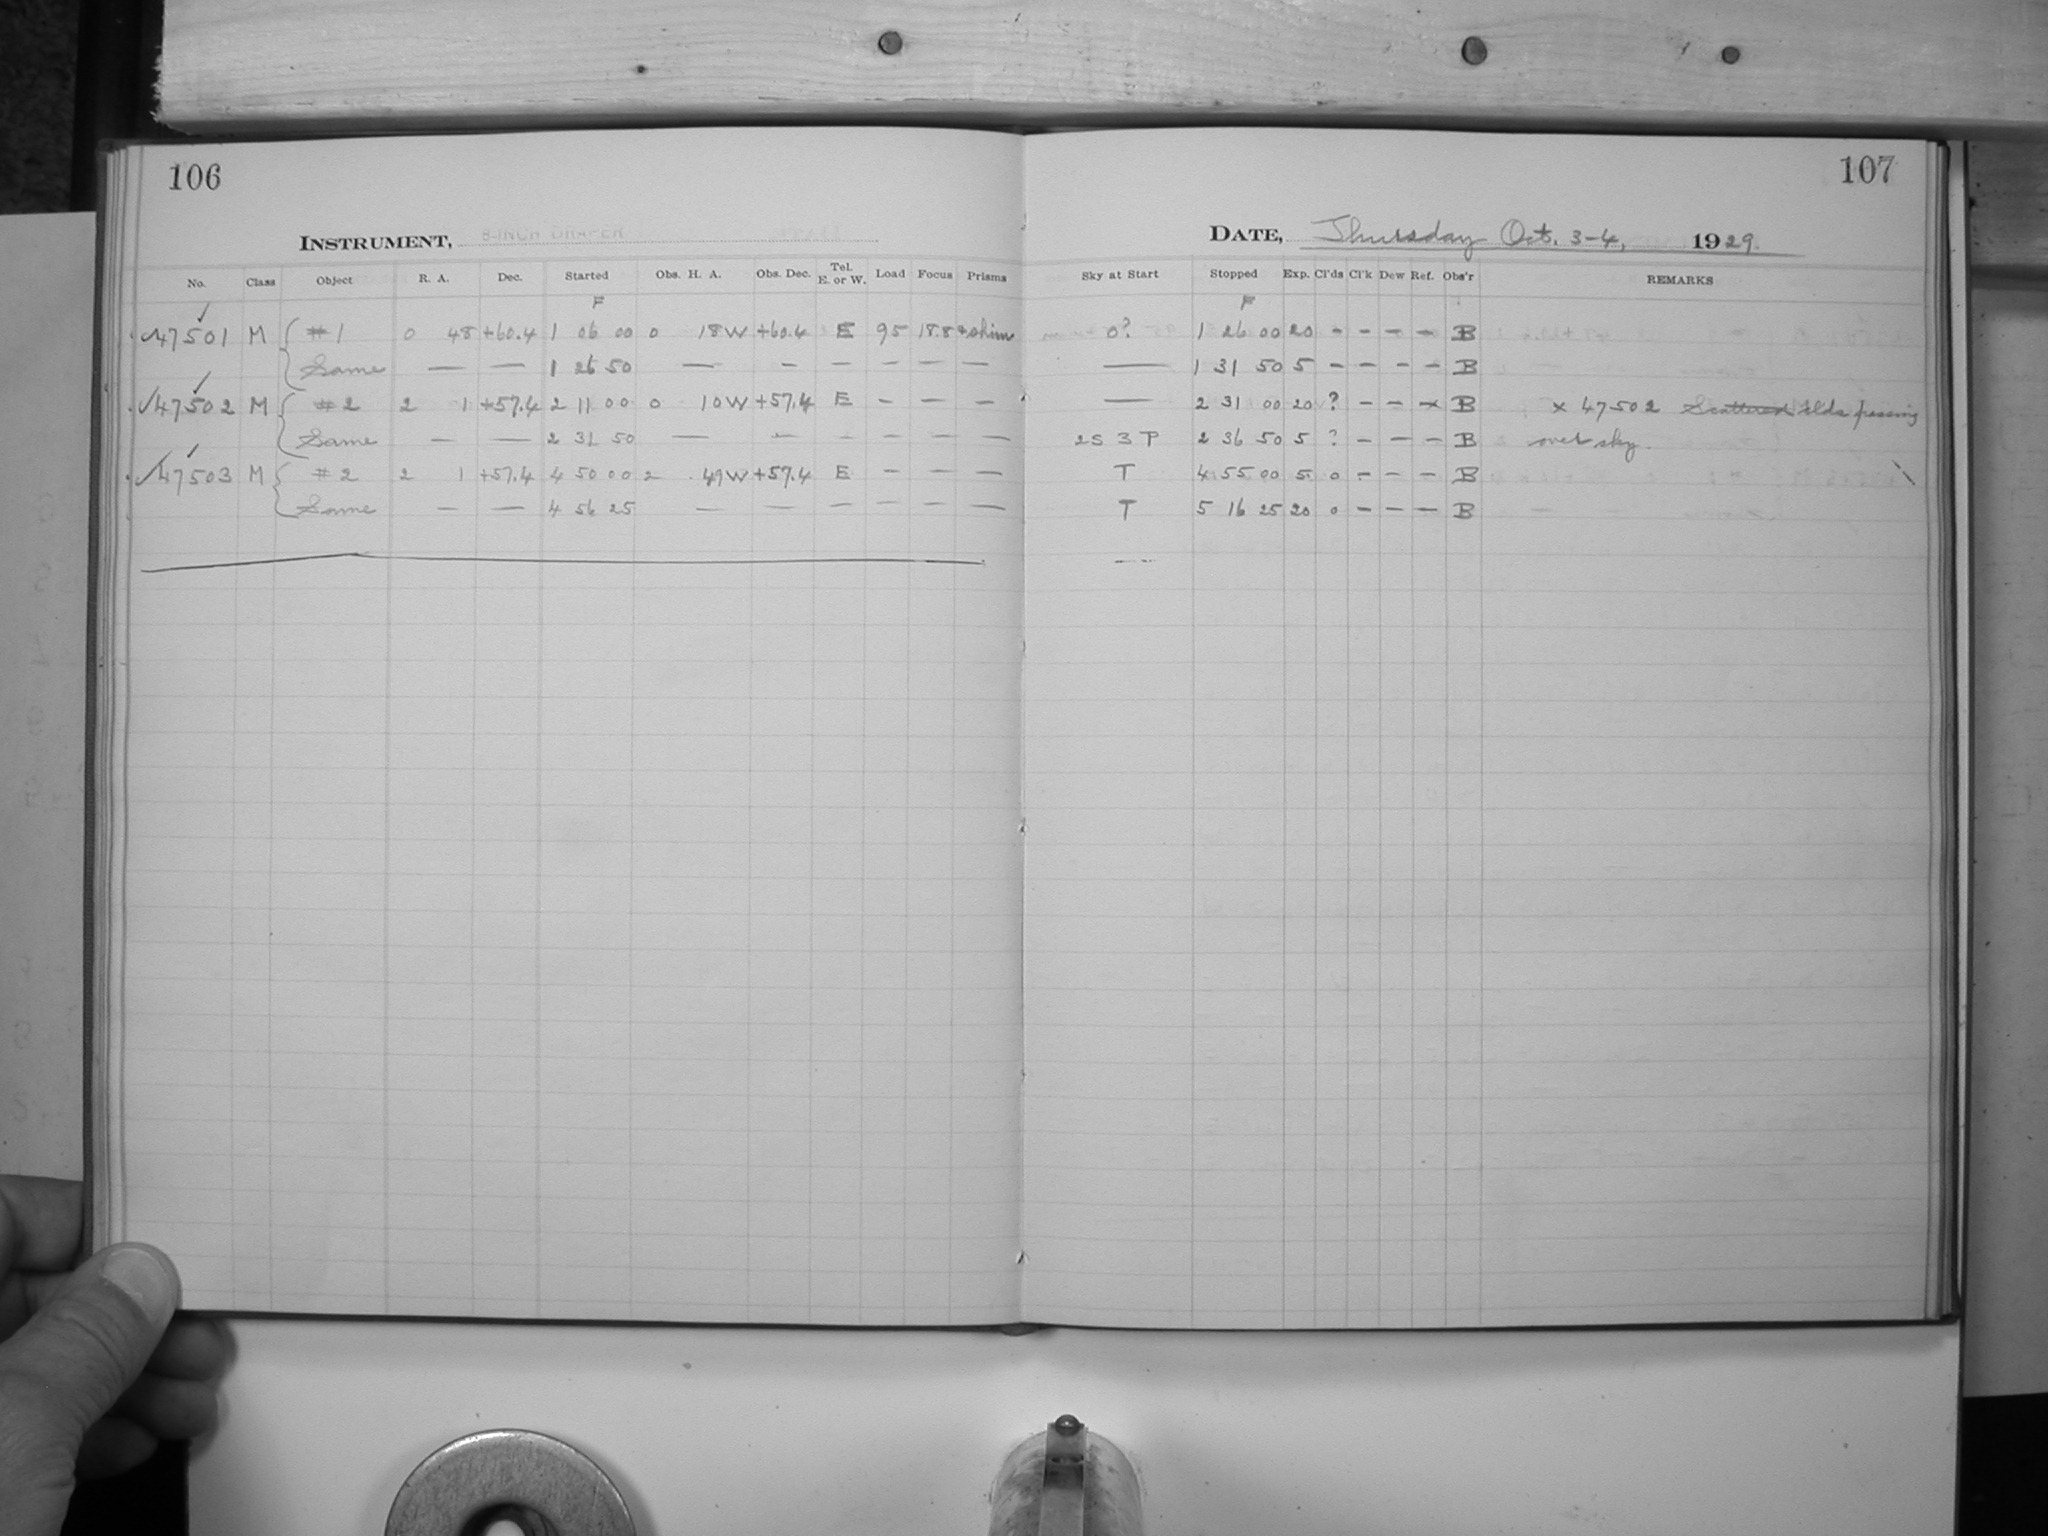 106
107
INSTRUMENT, 8-INCH DRAPER
DATE, Thursday Oct. 3-4, 1929.
No. Class Object R. A. Dec. Started Obs. H. A. Obs. Dec. Tel. E. or W. Load Focus Prisms Sky at Start Stopped Exp. Cl'ds Cl'k Dew Ref. Obs'r REMARKS
F F
✓47501 M { #1 0 48 +60.4 1 06 00 0 18W +60.4 E 95 18.8 + shim 0? 1 26 00 20 – – – – B
Same — — 1 26 50 — – – – – — — 1 31 50 5 – – – – B
✓47502 M { #2 2 1 +57.4 2 11 00 0 10W +57.4 E – – — — 2 31 00 20 ? – – x B x 47502 Scattered clds passing
Same — — 2 31 50 — – – – – — 2S 3P 2 36 50 5 ? – – – B over sky.
✓47503 M { #2 2 1 +57.4 4 50 00 2 49W +57.4 E – – — T 4 55 00 5 0 – – – B
Same — — 4 56 25 — — – – – — T 5 16 25 20 0 – – – B